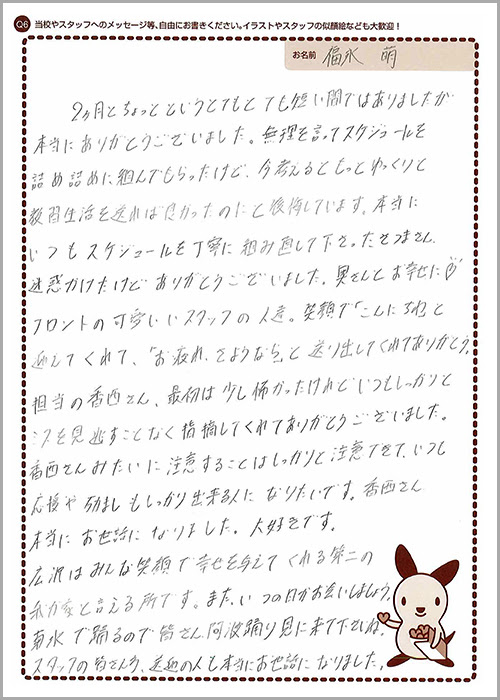 Q6 当校やスタッフへのメッセージ等、自由にお書きください。イラストやスタッフの似顔絵なども大歓迎！
お名前 福永 萌
2ヵ月とちょっとというとてもとても短い間ではありましたが
本当にありがとうございました。無理を言ってスケジュールを
詰め詰めに組んでもらったけど、今考えるともっとゆっくりと
教習生活を送れば良かったのにと後悔しています。本当に
いつもスケジュールを丁寧に組み直して下さったさつまさん、
迷惑かけたけどありがとうございました。奥さんとお幸せに
フロントの可愛いいスタッフの人達。笑顔で「こんにちわ」と
迎えてくれて、「お疲れ、さようなら」と送り出してくれてありがとう。
担当の香西さん、最初は少し怖かったけれどいつもしっかりと
ミスを見逃すことなく指摘してくれてありがとうございました。
香西さんみたいに注意することはしっかりと注意できて、いつも
応援や励ましもしっかり出来る人になりたいです。香西さん
本当にお世話になりました。大好きです。
広沢はみんな笑顔で幸せを与えてくれる第二の
我が家と言える所です。また、いつの日かお会いしましょう。
菊水で踊るので皆さん、阿波踊り見に来て下さいね。
スタッフの皆さん、送迎の人も本当にお世話になりました。